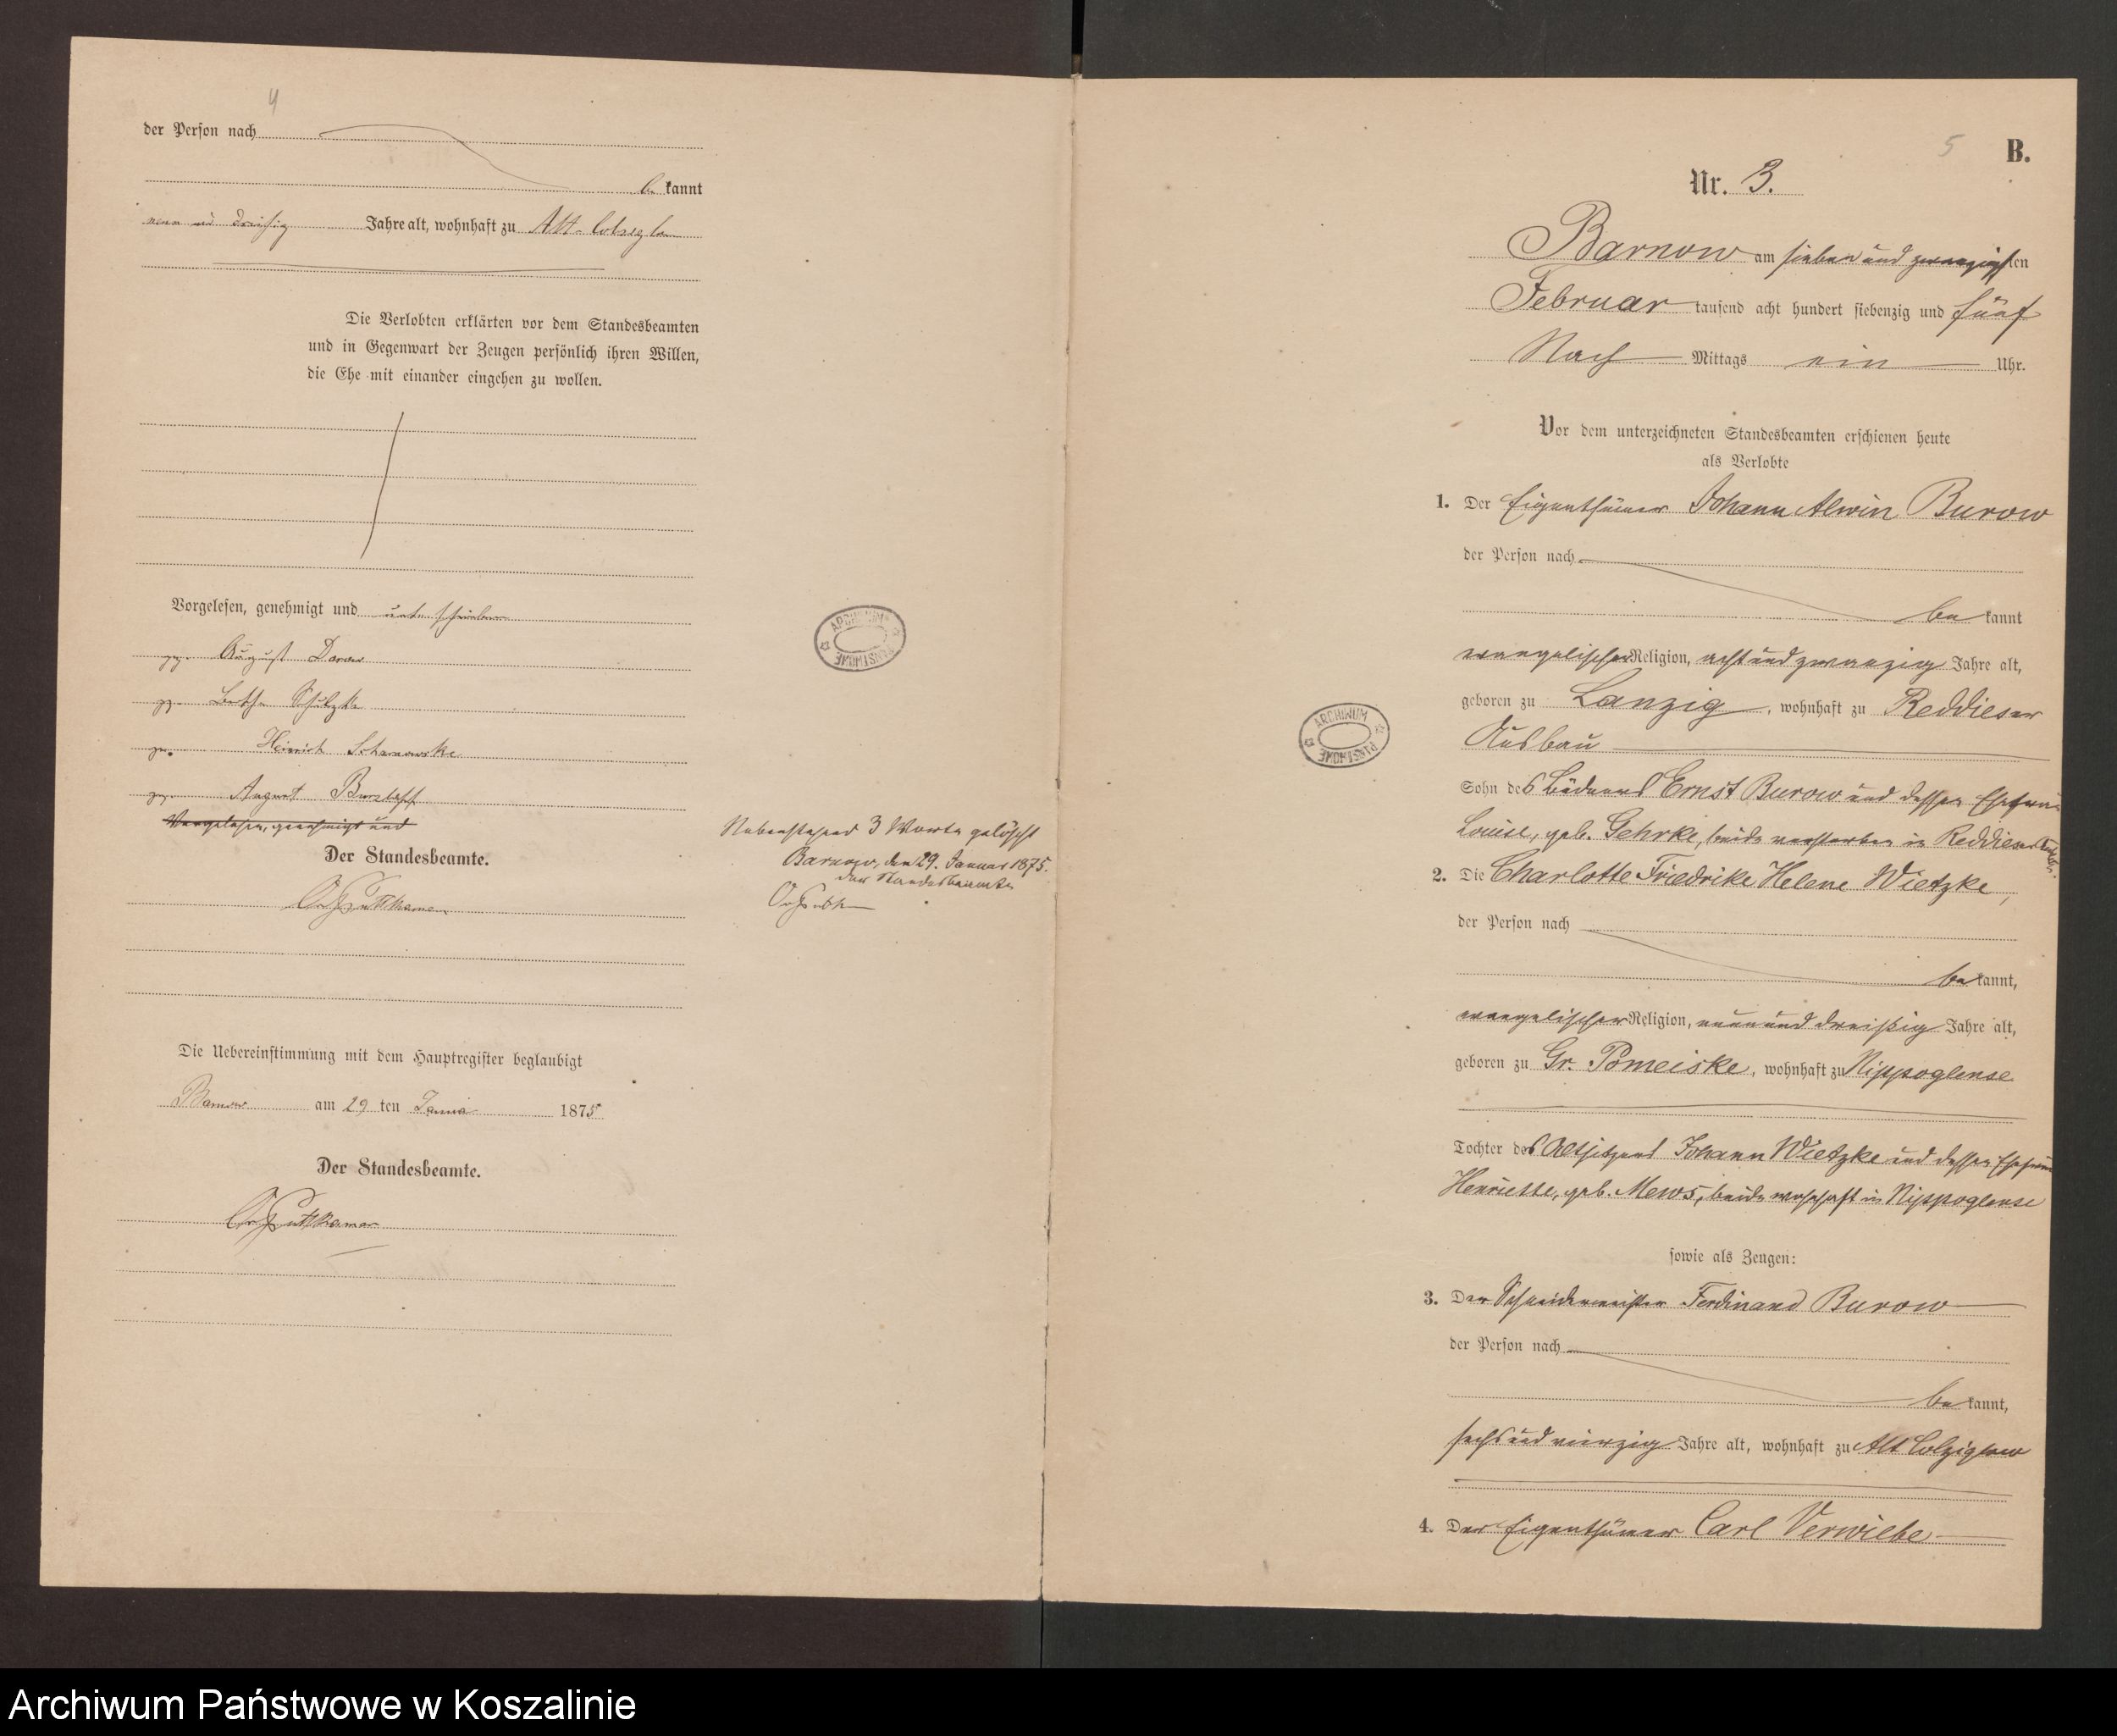 4
der Person nach
be kannt
neun und dreißig Jahre alt, wohnhaft zu Alt-Colziglow
Die Verlobten erklärten vor dem Standesbeamten
und in Gegenwart der Zeugen persönlich ihren Willen,
die Ehe mit einander eingehen zu wollen.
Vorgelesen, genehmigt und unterschrieben
gez. August
gez. Bertha Schulzke
gez. Heinrich
gez. August Burzlaff
Vorgelesen, genehmigt und
Der Standesbeamte.
Puttkamer
Die Uebereinstimmung mit dem Hauptregister beglaubigt
Barnow am 29 ten Januar 1875
Der Standesbeamte.
Puttkamer
Nebenstehend 3 Worte gelöscht
Barnow, den 29. Januar 1875.
der Standesbeamte
ARCHIWUM PAŃSTWOWE
ARCHIWUM PAŃSTWOWE
5
B.
Nr. 3.
Barnow am sieben und zwanzigsten
Februar tausend acht hundert siebenzig und fünf
Nach Mittags ein Uhr.
Vor dem unterzeichneten Standesbeamten erschienen heute
als Verlobte
1. Der Eigenthümer Johann Alwin Burow
der Person nach
be kannt
evangelischer Religion, acht und zwanzig Jahre alt,
geboren zu Lanzig, wohnhaft zu Reddieser
Ausbau
Sohn des Büdners Ernst Burow und dessen Ehefrau
Louise, geb. Gehrke, beide verstorben in Reddieser
2. Die Charlotte Friedrike Helene Wietzke,
der Person nach
be kannt,
evangelischer Religion, neun und dreißig Jahre alt,
geboren zu Gr. Pomeiske, wohnhaft zu Nippoglense
Tochter des Altsitzers Johann Wietzke und dessen Ehefrau
Henriette, geb. Mews, beide wohnhaft in Nippoglense
sowie als Zeugen:
3. Der Schneidermeister Ferdinand Burow
der Person nach
be kannt,
sechs und vierzig Jahre alt, wohnhaft zu Alt Colziglow
4. Der Eigenthümer Carl Verwiebe
Archiwum Państwowe w Koszalinie